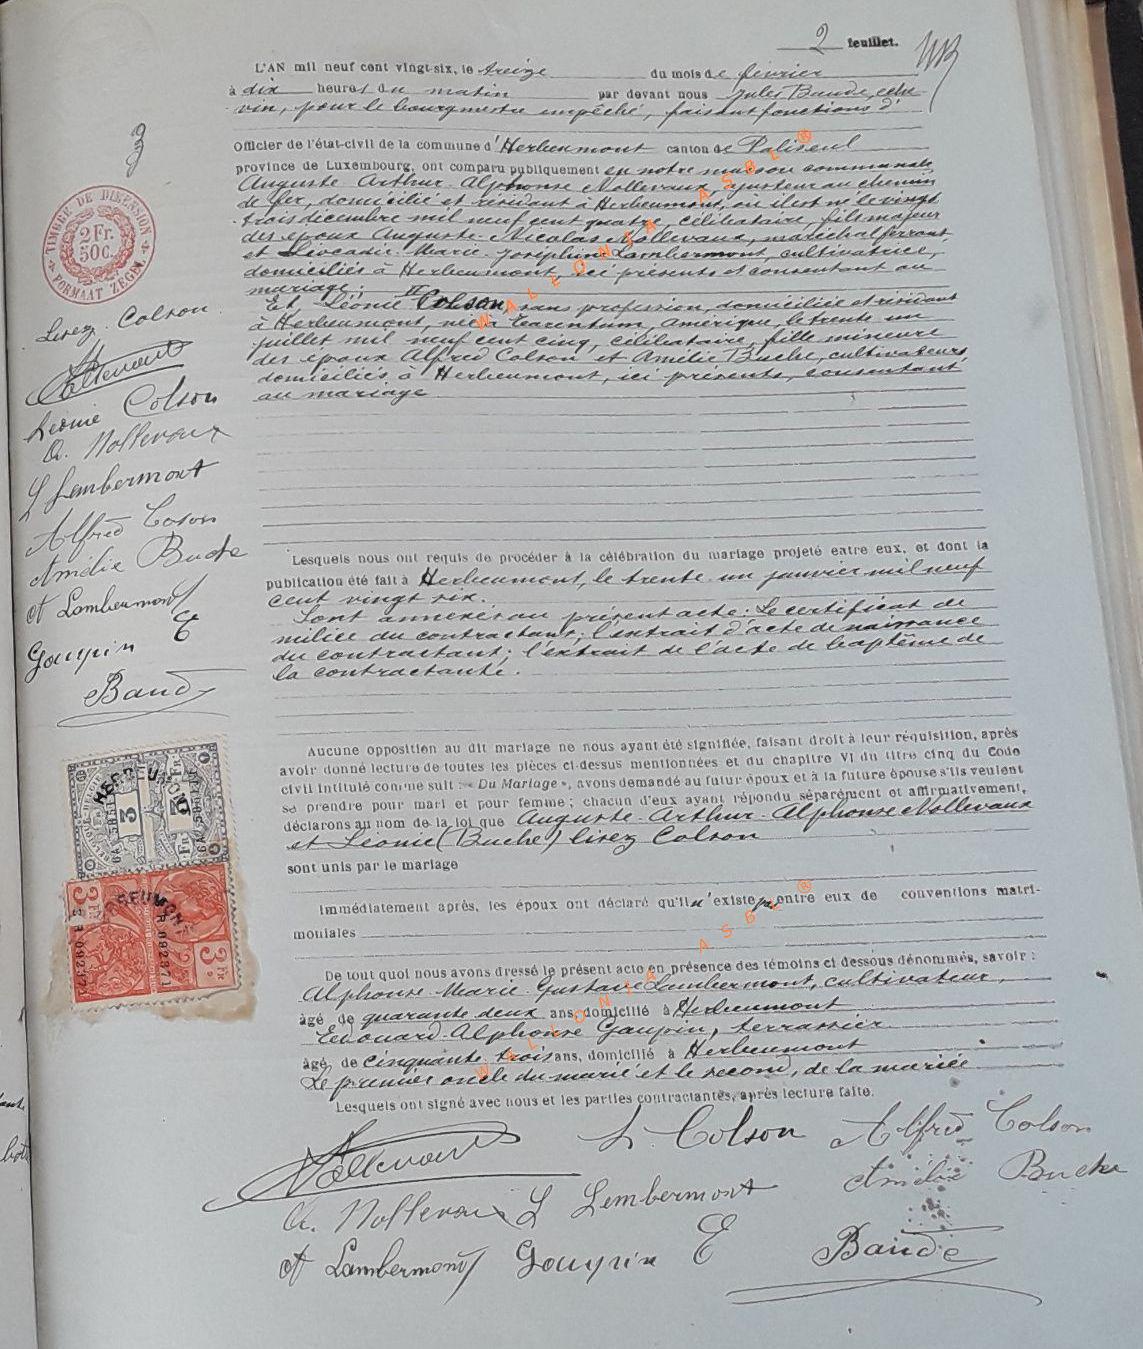 2 feuillet.
L'AN mil neuf cent vingt-six, le treize du mois de février
à dix heures du matin par devant nous Jules Baude, éche
vin, pour le bourgmestre empêché, faisant fonctions d'
Officier de l'état-civil de la commune d'Herbeumont canton de Paliseul
province de Luxembourg, ont comparu publiquement en notre maison communale,
Auguste Arthur Alphonse Nollevaux, ajusteur au chemin
de fer, domicilié et résidant à Herbeumont, où il est né le vingt
trois décembre mil neuf cent quatre, célibataire, fils majeur
des époux Auguste-Nicolas Nollevaux, maréchal ferrant,
et Léocadie-Marie-Joséphine Lambermont, cultivatrice,
domiciliés à Herbeumont, ici présents et consentant au
mariage;
Et Léonie Colson, sans profession, domiciliée et résidant
à Herbeumont, née à Tarentum, Amérique, le trente un
juillet mil neuf cent cinq, célibataire, fille mineure
des époux Alfred Colson et Amélie Buche, cultivateurs,
domiciliés à Herbeumont, ici présents, consentant
au mariage
Lesquels nous ont requis de procéder à la célébration du mariage projeté entre eux, et dont la
publication été fait à Herbeumont, le trente-un janvier mil neuf
cent vingt six.
Sont annexés au présent acte: Le certificat de
milice du contractant; l'extrait d'acte de naissance
du contractant; l'extrait de l'acte de baptême de
la contractante.
Aucune opposition au dit mariage ne nous ayant été signifiée, faisant droit à leur réquisition, après
avoir donné lecture de toutes les pièces ci-dessus mentionnées et du chapitre VI du titre cinq du Code
civil intitulé comme suit : « Du Mariage », avons demandé au futur époux et à la future épouse s'ils veulent
se prendre pour mari et pour femme ; chacun d'eux ayant répondu séparément et affirmativement,
déclarons au nom de la loi que Auguste-Arthur-Alphonse Nollevaux
et Léonie (Buche) lisez Colson
sont unis par le mariage
Immédiatement après, les époux ont déclaré qu'il n'existe pas entre eux de conventions matri-
moniales
De tout quoi nous avons dressé le présent acte en présence des témoins ci dessous dénommés, savoir :
Alphonse-Marie-Gustave Lambermont, cultivateur,
âgé de quarante deux ans, domicilié à Herbeumont
Edouard-Alphonse Goupin, terrassier
âgé de cinquante trois ans, domicilié à Herbeumont
Le premier oncle du marié et le second, de la mariée
Lesquels ont signé avec nous et les parties contractantes, après lecture faite.
Nollevaux L. Colson Alfred Colson
A. Nollevaux L Lambermont Amélie Buche
A Lambermont Goupin E Baude
TIMBRE DE DIMENSION
2 Fr.
50 C.
FORMAAT ZEGEL
Lisez Colson
Nollevaux
Léonie Colson
A. Nollevaux
L Lambermont
Alfred Colson
Amélie Buche
A Lambermont
Goupin E
Baude
3
3 Fr
3 Fr
WALLONIA ASBL ®
WALLONIA ASBL ®